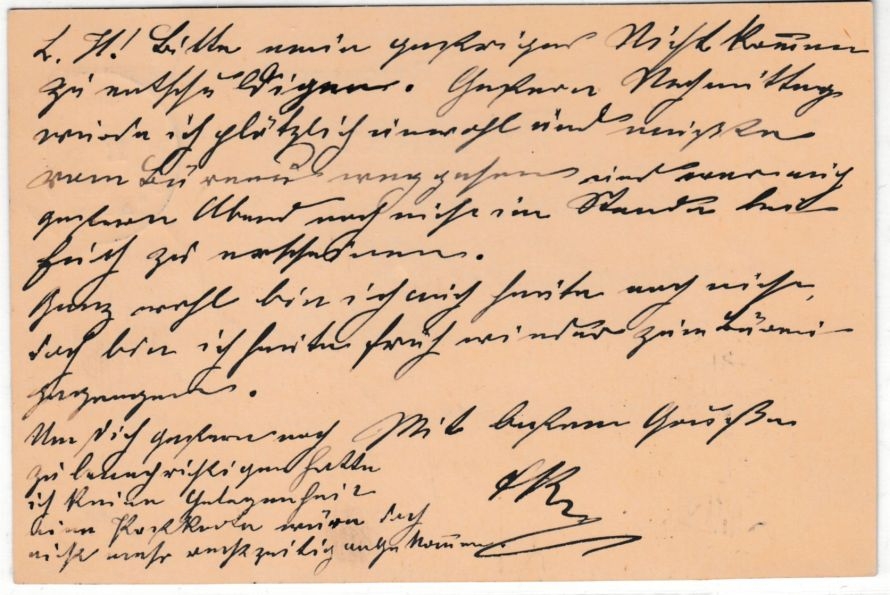 L. H.! Bitte mein gestriges Nichtkommen
zu entschuldigen. Gestern Nachmittag
wurde ich plötzlich unwohl und mußte
vom Bureau weggehen und war auch
gestern Abend noch nicht im Stande bei
Euch zu erscheinen.
Ganz wohl bin ich auch heute noch nicht,
doch bin ich heute früh wieder zum Bureau
gegangen.
Mit besten Grüßen
Um Dich gestern noch
zu benachrichtigen hatte
ich keine Gelegenheit
eine Postkarte wäre doch
nicht mehr rechtzeitig angekommen.